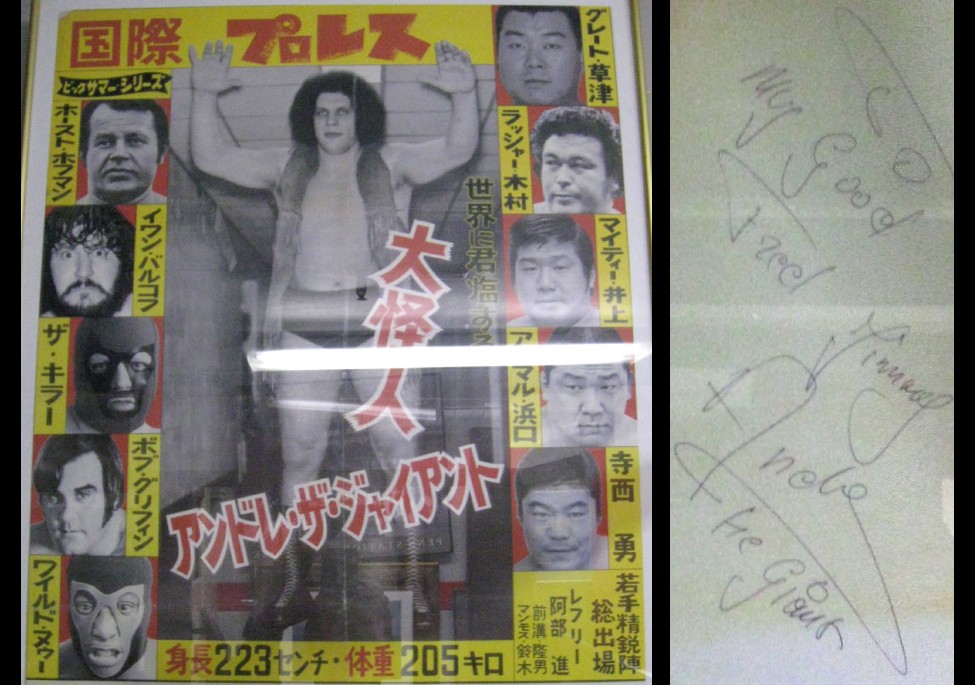 国際プロレス
ビッグサマー・シリーズ
ホースト・ホフマン
イワン・バルコフ
ザ・キラー
ボブ・グリフィン
ワイルド・ヌウー
世界に君臨する
大怪人
アンドレ・ザ・ジャイアント
グレート・草津
ラッシャー木村
マイティ・井上
アニマル・浜口
寺西 勇
若手精鋭陣
総出場
レフリー
阿部 進
前溝隆男
マンモス鈴木
身長223センチ・体重205キロ
To
My Good
Andre
The Giant